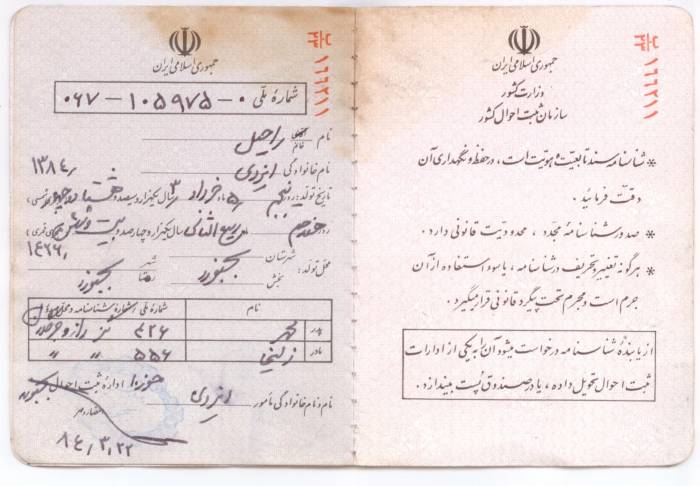 جمهوری اسلامی ایران
وزارت کشور
سازمان ثبت احوال کشور
* شناسنامه سند تابعیت و هویت است، در حفظ و نگهداری آن
دقت فرمائید.
* صدور شناسنامهٔ مجدد، محدودیت قانونی دارد.
* هرگونه تغییر و تحریف در شناسنامه، یا سوء استفاده از آن
جرم است و مجرم تحت پیگرد قانونی قرار میگیرد.
از یابندهٔ شناسنامه درخواست میشود آن را به یکی از ادارات
ثبت احوال تحویل داده، یا در صندوق پست بیندازد.
جمهوری اسلامی ایران
شمارهٔ ملّی ۰۶۷-۱۰۵۹۷۵-۰
نام راحیل
نام خانوادگی ایزدی
تاریخ تولد: روز پنجم ۵/ ماه خرداد ۳/ سال یکهزار و سیصد و هشتاد و چهار شمسی ۱۳۸۴/
روز هفدهم ماه ربیع الثانی سال یکهزار و چهارصد و بیست و شش هجری قمری ۱۴۲۶/
محل تولد: شهرستان بجنورد شهر
بخش روستا بجنورد
نام شمارهٔ ملی / شمارهٔ شناسنامه و محل
پدر ۴۲۶
مادر ۵۵۶ " "
نام و نام خانوادگی مأمور ایزدی حوزه ۱ ادارهٔ ثبت احوال بجنورد
امضاء و مهر
۸۴/۳/۲۲